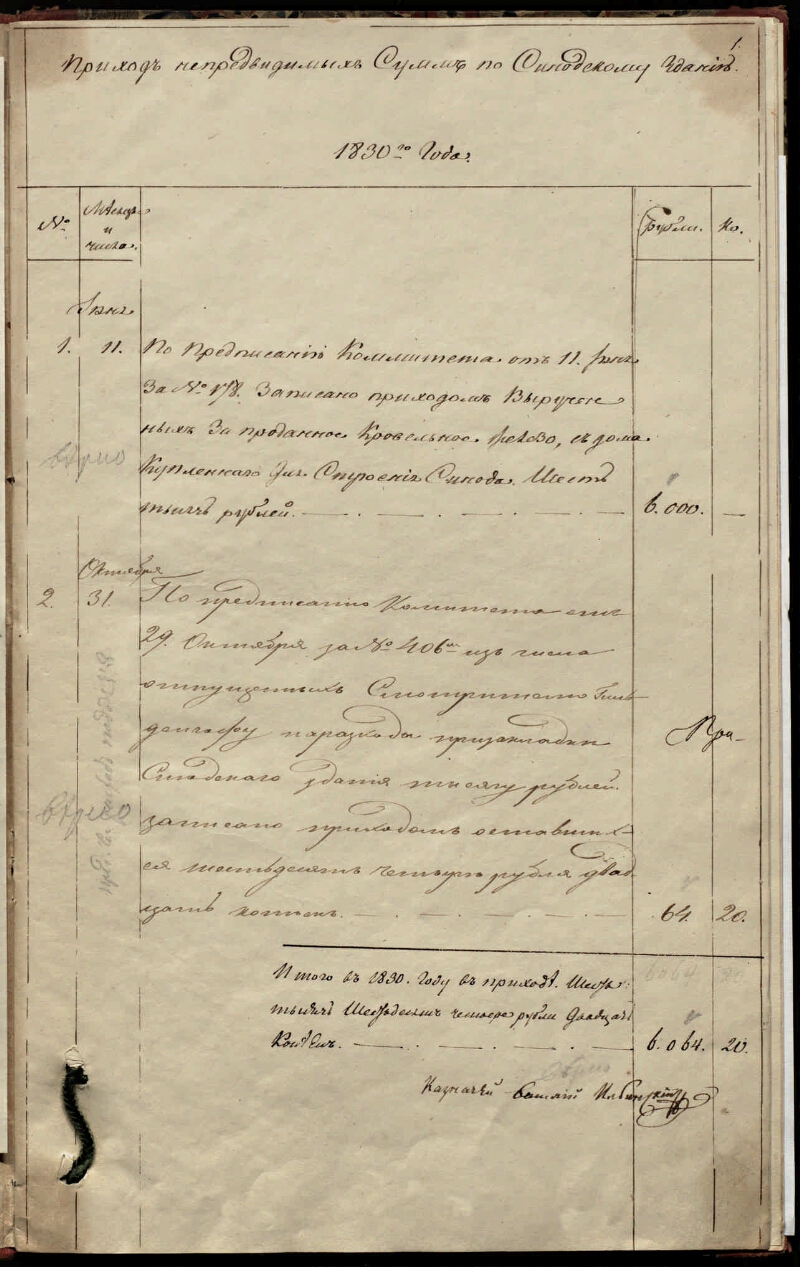 1.
Приходъ непредвидимыхъ Суммъ по Синодскому Зданію.
1830го Года.
№
Мѣсяцъ
и
число.
Рубли.
Ко.
Іюня
1. 11. По Предписанію Коммитета отъ 11. Іюня
За № 178. Записано приходомъ Выручен
ныхъ За проданное Кровельное желѣзо, съ дома
вѣрно
Купленнаго для Строенія Синода. Шесть
тысячь рублей. 6.000. —
Октября
2. 31. По предписанію Коммитета отъ
29. Октября за № 406мъ изъ числа
отпущенныхъ Смотрителю Гиль
денгофу на расходы при закладки
Синодскаго зданія тысячу рублей
вѣрно
записано приходомъ оставших-
ся шестьдесятъ четыре рубля двад
цать копѣекъ. 64. 20.
Итого въ 1830. Году въ приходѣ. Шесть
тысячь Шестьдесятъ четыре рубли Двадцать
Копѣекъ. 6.064. 20.
6064 20
вѣрно
Казначей